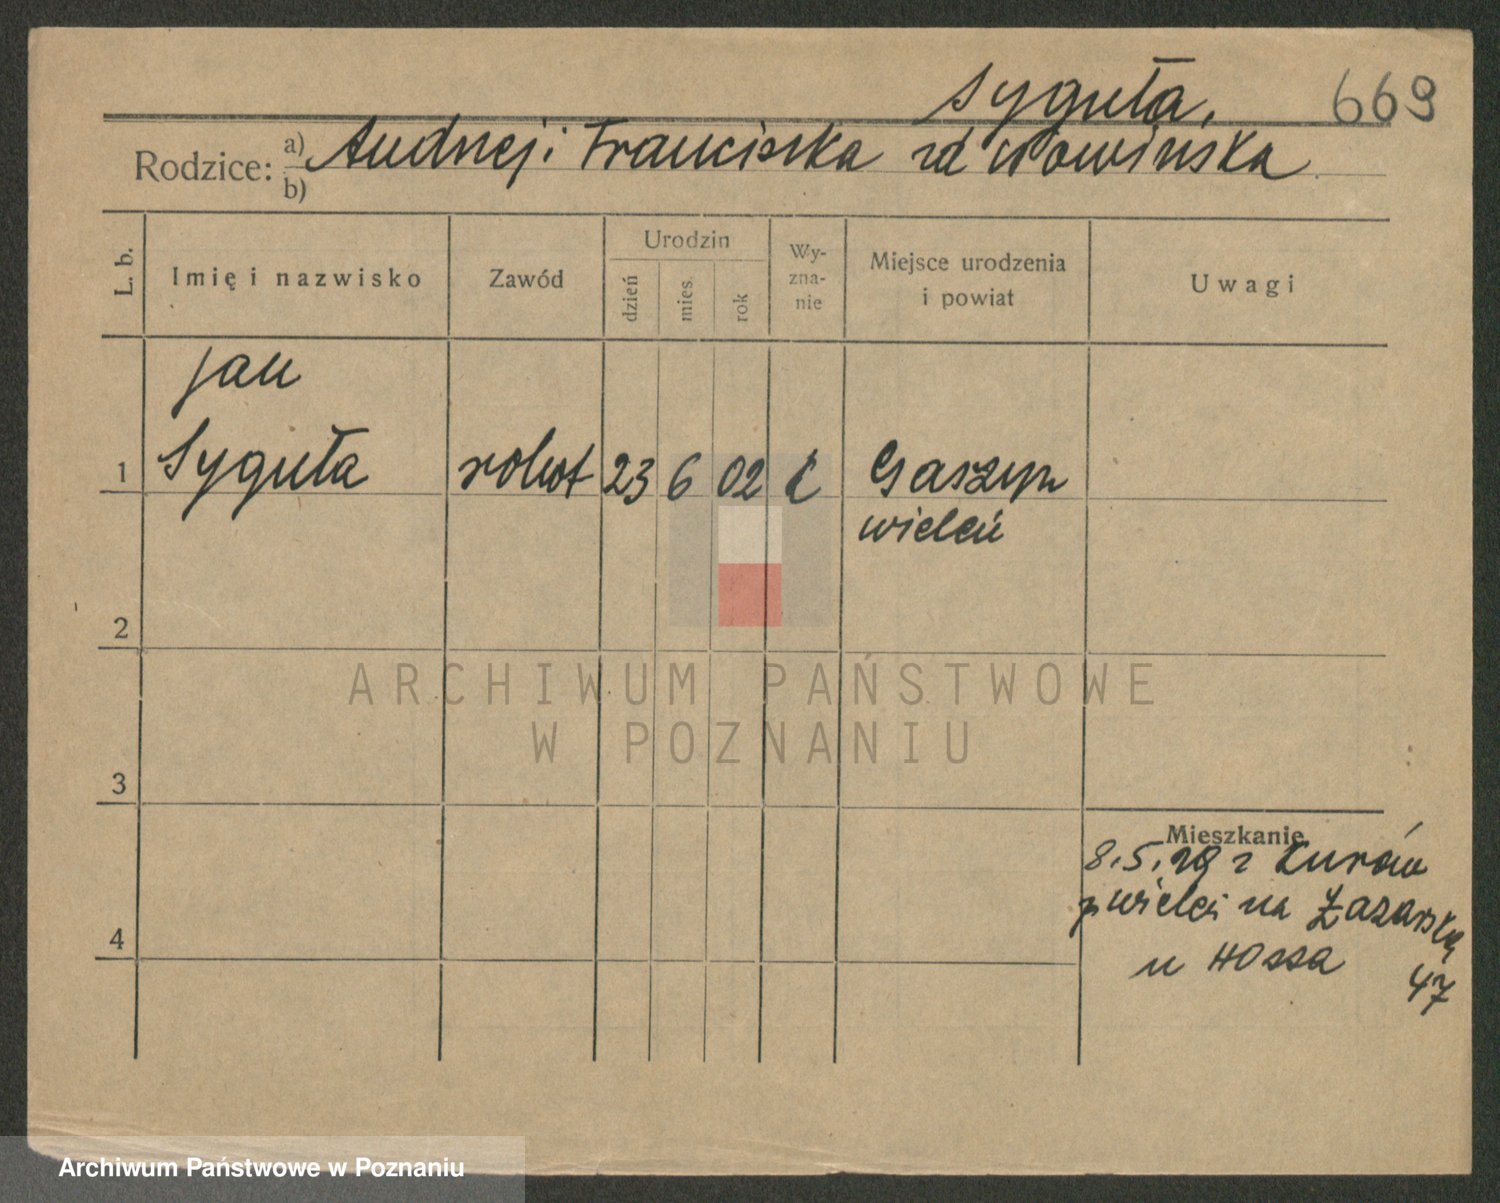 Syguła, 669
Rodzice: a) Andrzej i Franciszka zd Nowińska
b)
L. b. Imię i nazwisko Zawód Urodzin dzień mies. rok Wy-zna-nie Miejsce urodzenia i powiat Uwagi
Jan
1 Syguła robot 23 6 02 k Gaszyn
wieleń
2
3
4
Mieszkanie
8.5.29 z Kurów
p wieleń na Łazarską
u Hossa 47
ARCHIWUM PAŃSTWOWE
W POZNANIU
Archiwum Państwowe w Poznaniu